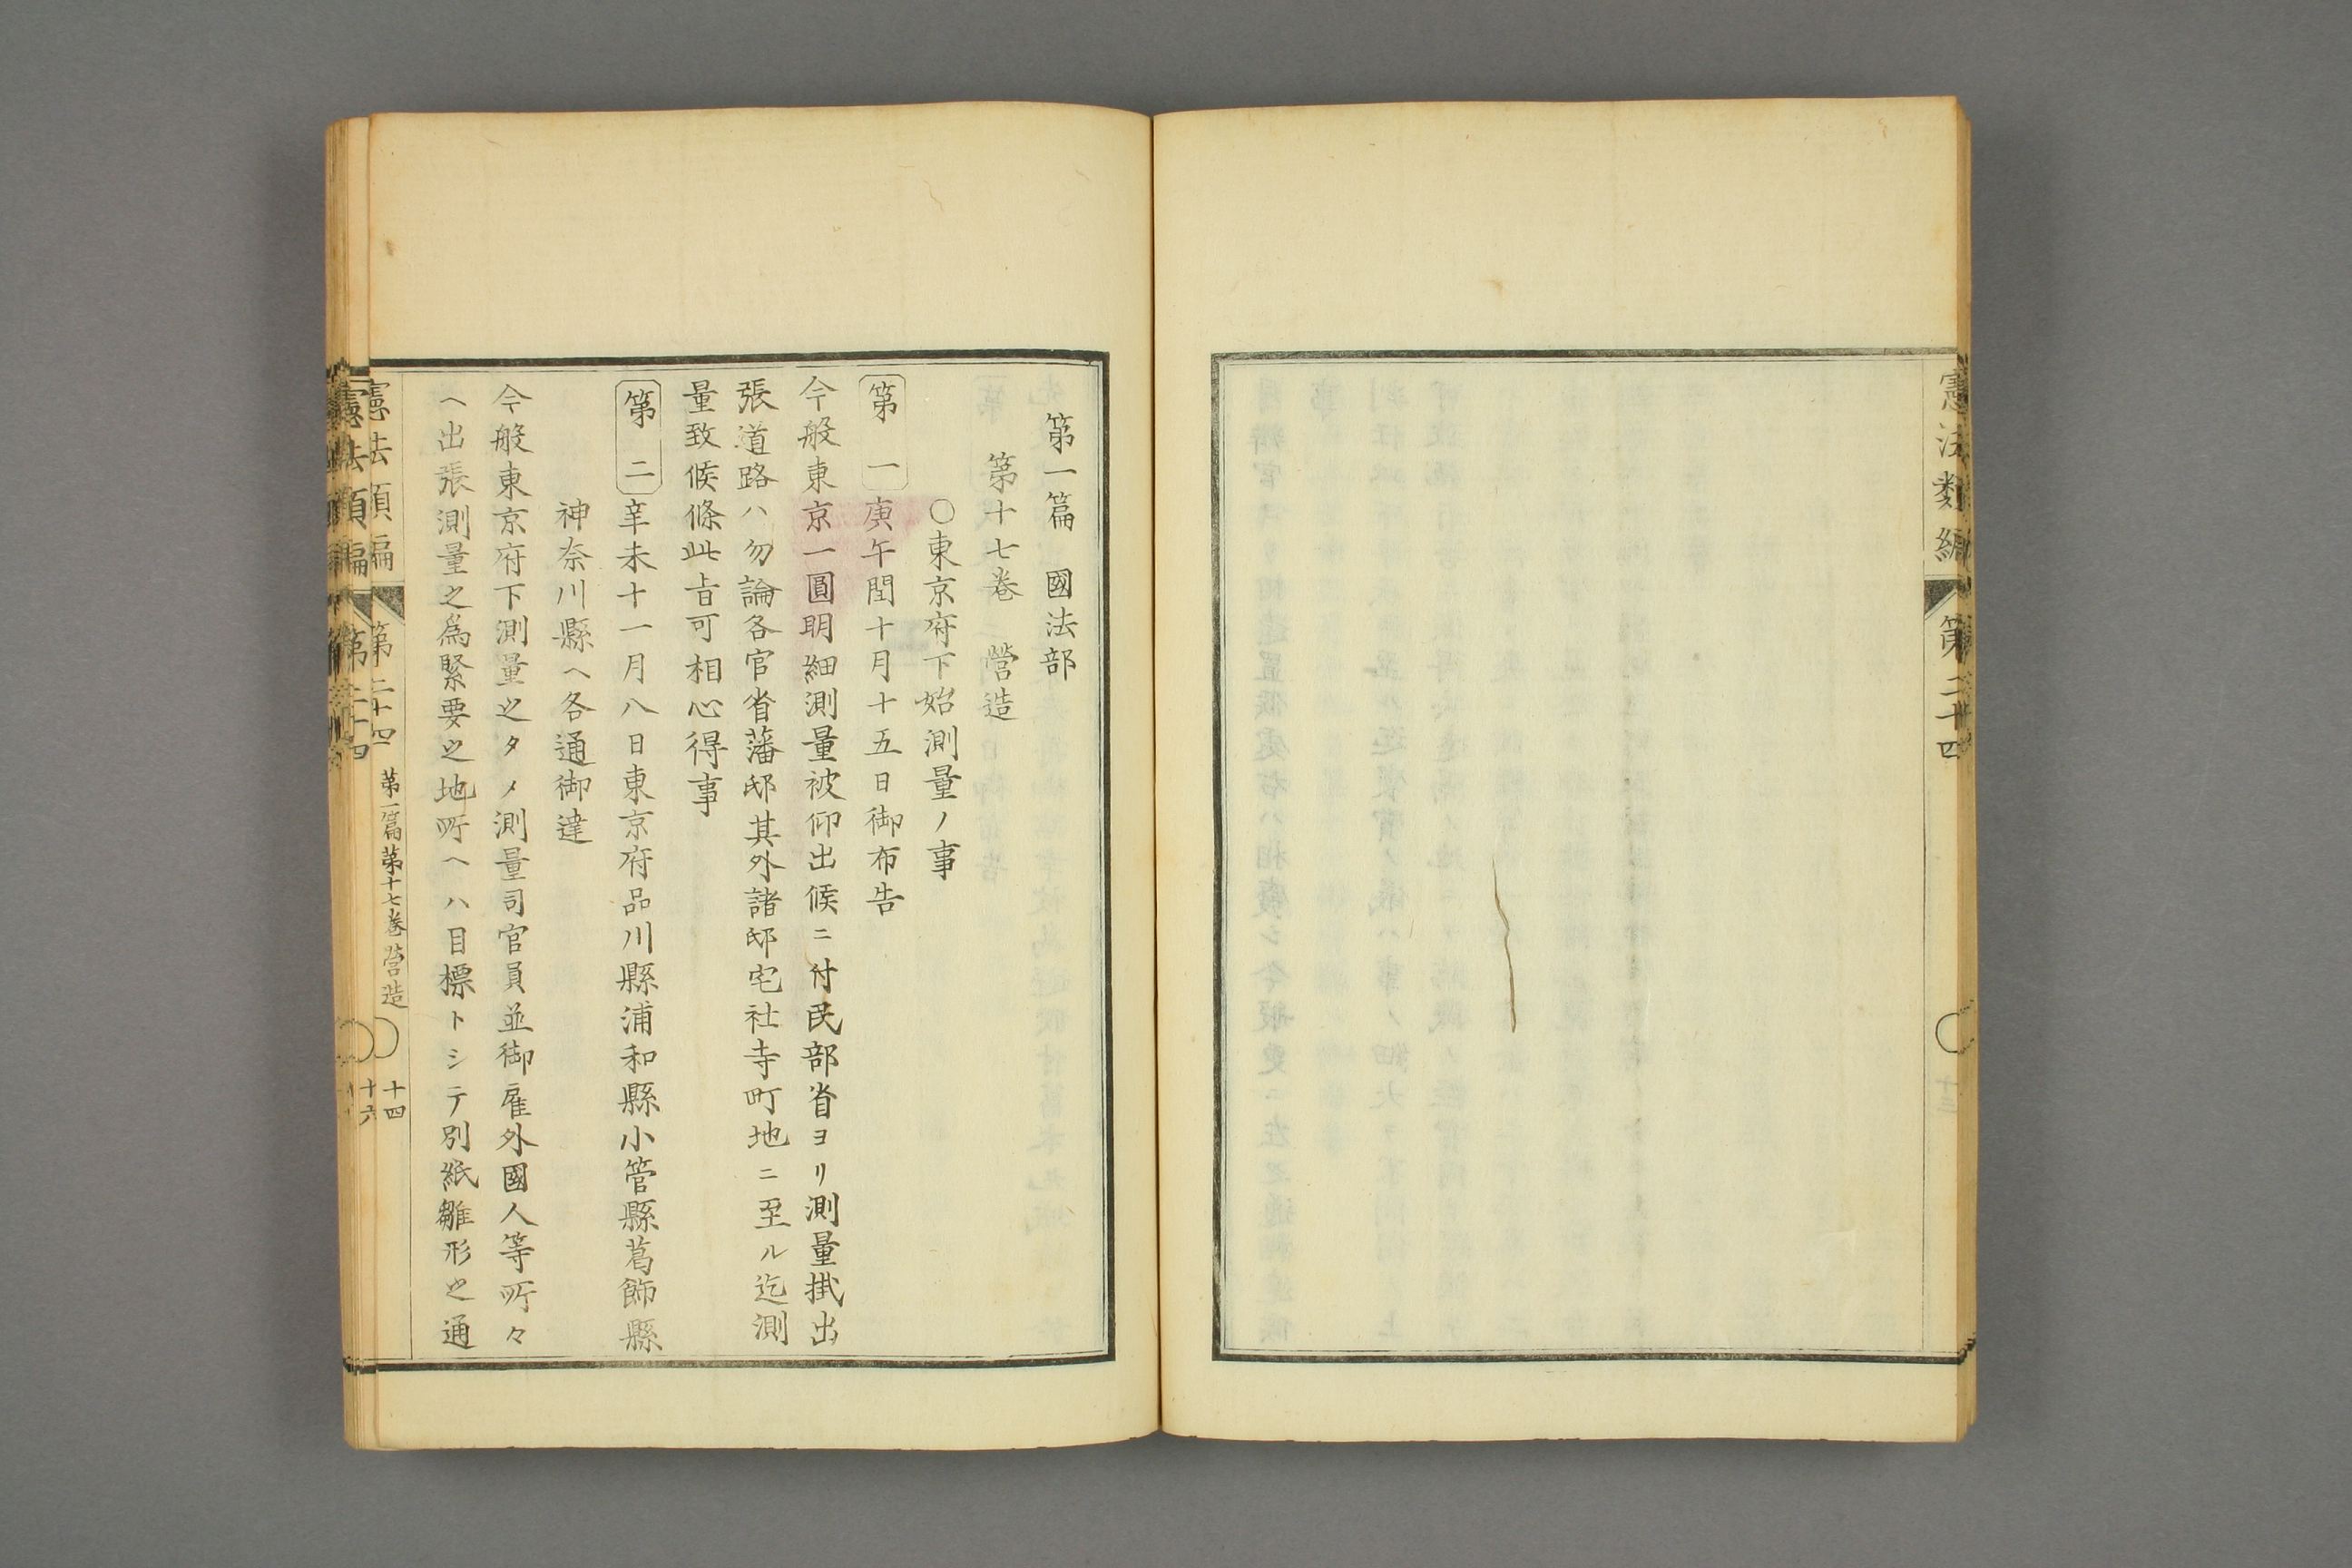 憲法類編
第二十四
第一篇　國法部
第十七巻　營造
〇東京府下始測量ノ事
第一　庚午閏十月十五日御布告
今般東京一圓明細測量被仰出候ニ付民部省ヨリ測量掛出
張道路ハ勿論各官省藩邸其外諸邸宅社寺町地ニ至ル迄測
量致候條此旨可相心得事
第二　辛未十一月八日東京府品川縣浦和縣小管縣葛飾縣
神奈川縣ヘ各通御達
今般東京府下測量之タメ測量司官員並御雇外國人等所々
ヘ出張測量之爲緊要之地所ヘハ目標トシテ別紙雛形之通
憲法類編
第二十四
第一篇第十七巻營造
十四
憲法類編
第二十四
十六